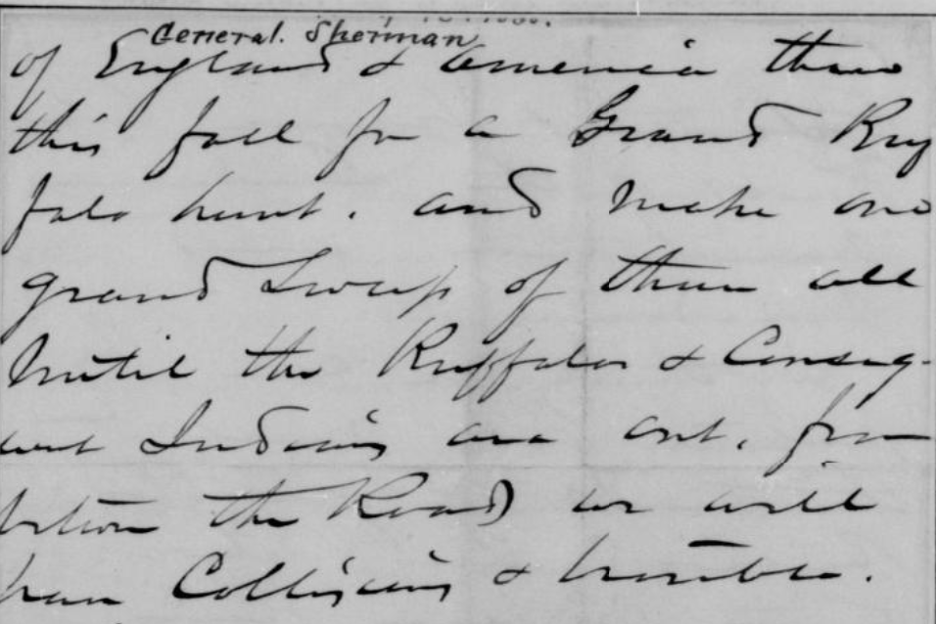 General. Sherman
of England & America there
this fall for a Grand Buf
falo hunt. and make one
grand Sweep of them all
Until the Buffalos & Conseq-
uent Indians are out. from
between the Roads we will
have Collisions & trouble.